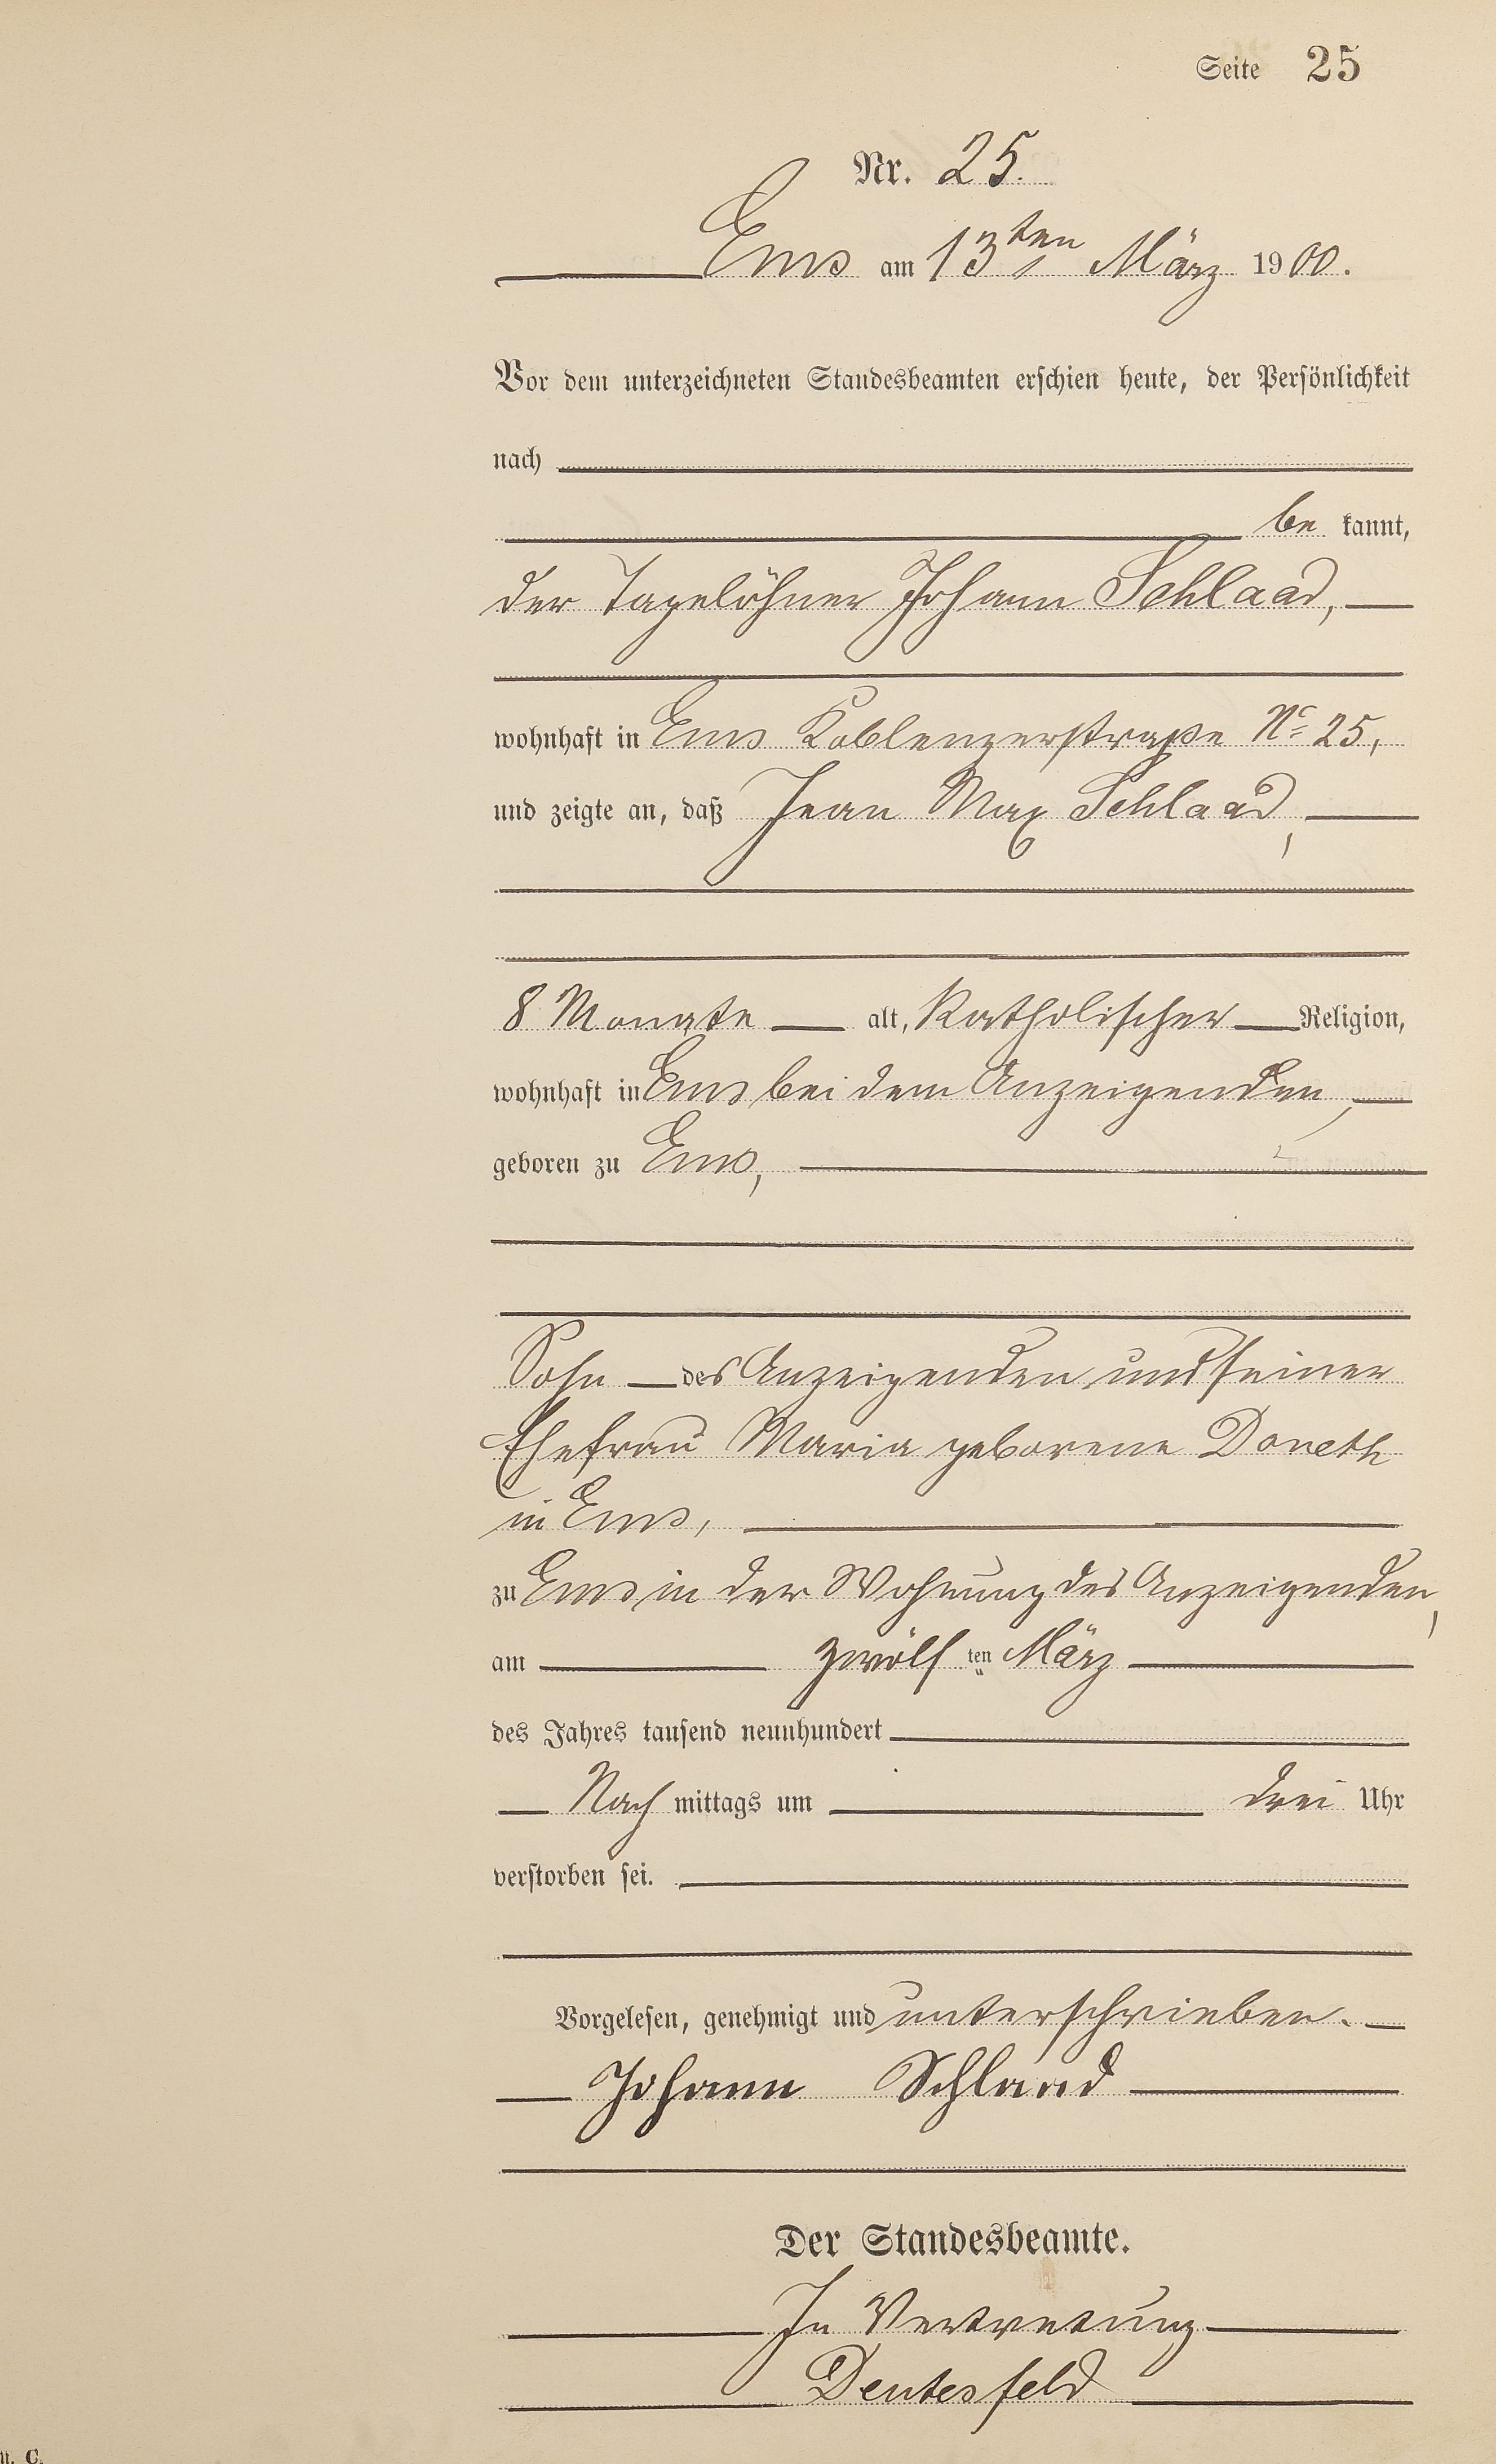 Seite 25
Nr. 25.
Ems am 13ten März 1900.
Vor dem unterzeichneten Standesbeamten erschien heute, der Persönlichkeit
nach
be kannt,
der Tagelöhner Johann Schlaad,
wohnhaft in Ems Koblenzerstraße No 25,
und zeigte an, daß Jean Max Schlaad,
8 Monate alt, Katholischer Religion,
wohnhaft in Ems bei dem Anzeigenden,
geboren zu Ems,
Sohn des Anzeigenden und seiner
Ehefrau Maria geborene Doneth
in Ems,
zu Ems in der Wohnung des Anzeigenden,
am zwölf ten März
des Jahres tausend neunhundert
Nach mittags um drei Uhr
verstorben sei.
Vorgelesen, genehmigt und unterschrieben.
Johann Schlaad
Der Standesbeamte.
In Vertretung
Deutesfeld
C.